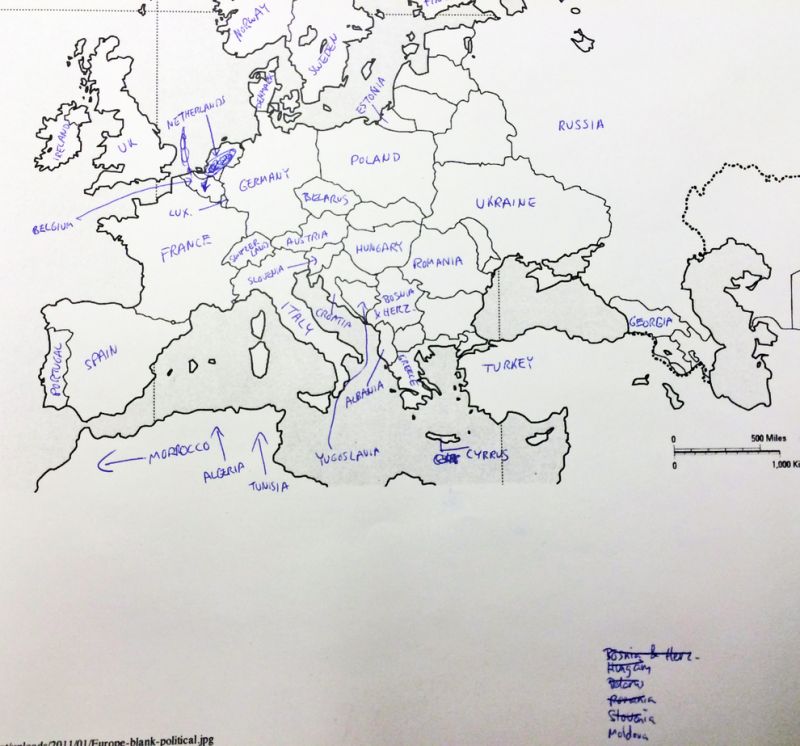 NORWAY
SWEDEN
DENMARK
ESTONIA
NETHERLANDS
RUSSIA
IRELAND
UK
POLAND
GERMANY
BELARUS
UKRAINE
BELGIUM
LUX.
FRANCE
SWITZER
LAND
AUSTRIA
HUNGARY
ROMANIA
SLOVENIA
ITALY
CROATIA
BOSNIA
& HERZ.
GEORGIA
PORTUGAL
SPAIN
GREECE
TURKEY
ALBANIA
MORROCCO
ALGERIA
TUNISIA
YUGOSLAVIA
CYRRUS
0 500 Miles
0 1,000 Ki
Bosnia & Herz.
Hungary
Belarus
Romania
Slovenia
Moldova
/uploads/2011/01/Europe-blank-political.jpg